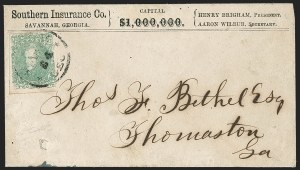 Southern Insurance Co.
SAVANNAH, GEORGIA.
CAPITAL
$1,000,000.
HENRY BRIGHAM, PRESIDENT.
AARON WILBUR, SECRETARY.
Thos F. Bethel Esq
Thomaston
Ga